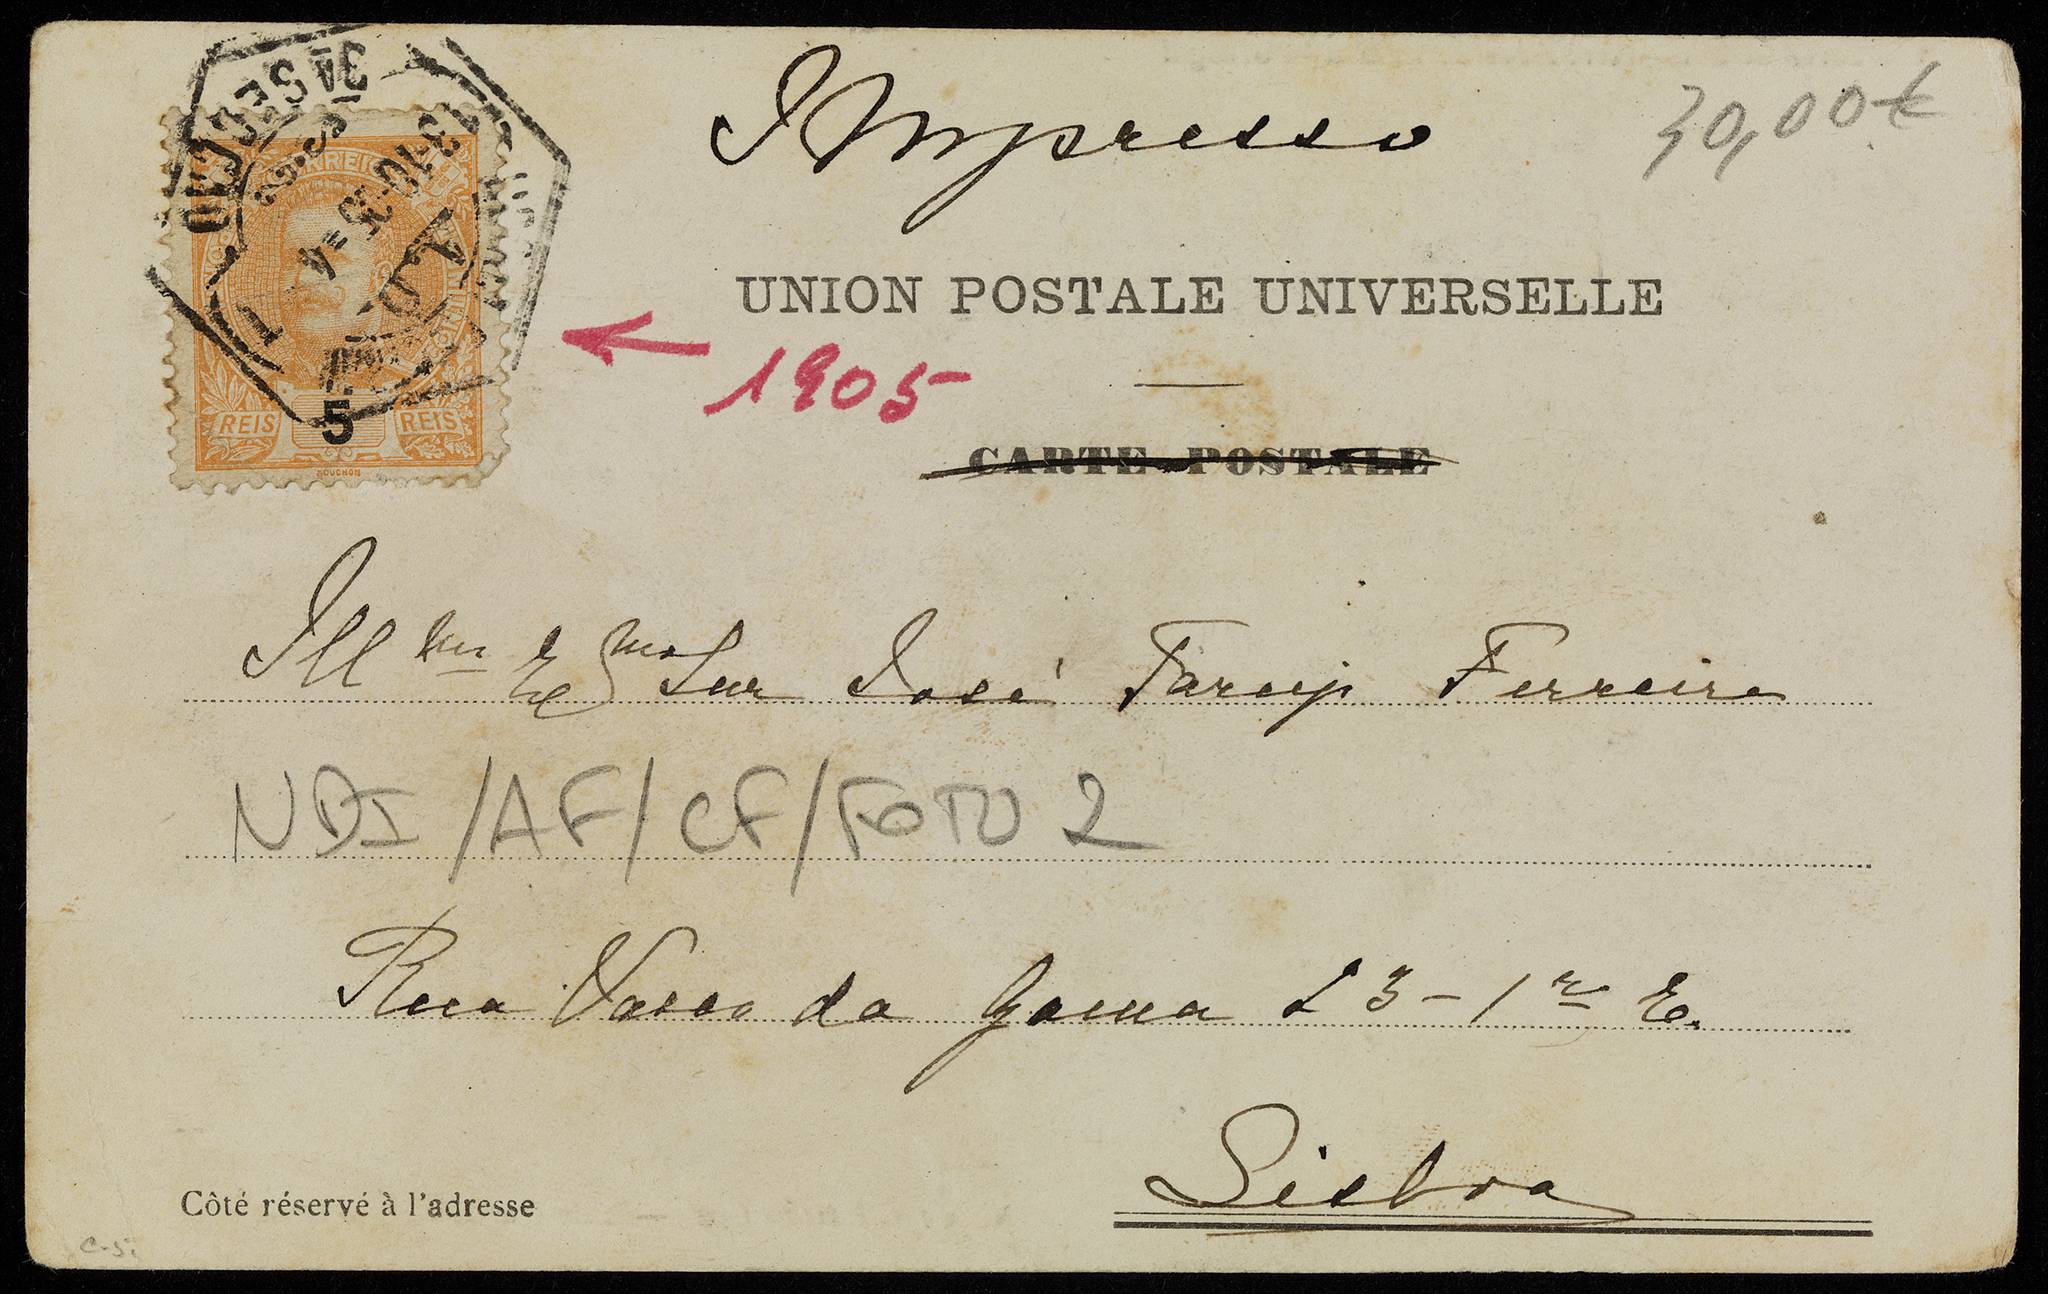 Impresso
30,00€
3ª SECÇÃO
13·10·05 = 4
CORREIOS
5
REIS REIS
MOUCHON
UNION POSTALE UNIVERSELLE
1905
CARTE POSTALE
Illmo Exmo Snr José Ferreira
NDI/AF/CF/FOTO 2
Rua Vasco da Gama 23-1º E.
Lisboa
Côté réservé à l'adresse